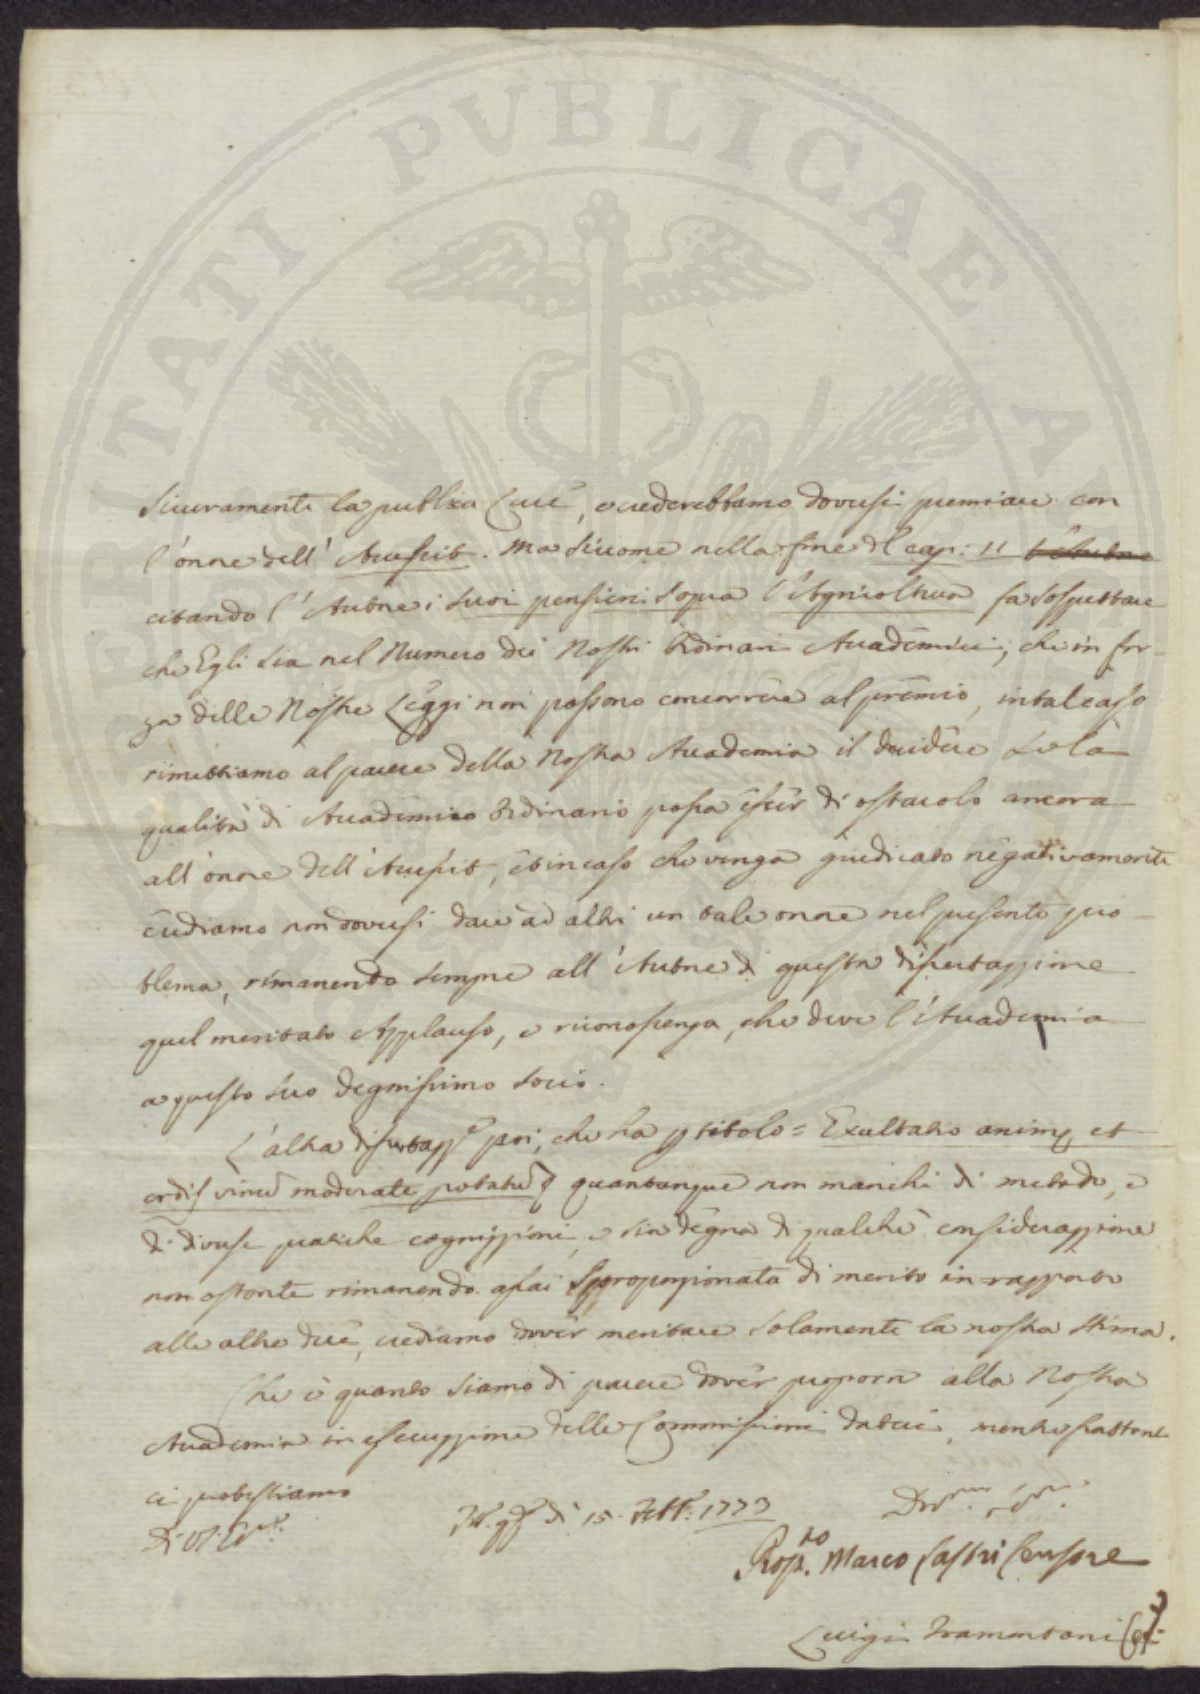 PROSPERITATI PUBLICAE A
sicuramente la publica luce, e crederebbamo doversi premiare con
l'onore dell' Accessit. Ma siccome nella fine del cap: 11 l'Autore
citando l'Autore i suoi pensieri sopra l'Agricoltura fa sospettare
che Egli sia nel Numero dei Nostri Ordinari Accademici, che in for-
za delle Nostre Leggi non possono concorrere al premio, in tal caso
rimettiamo al parere della Nostra Accademia il decidere se la
qualità di Accademico Ordinario possa esser di ostacolo ancora
all'onore dell'Accessit, et in caso che venga giudicato negativamente
crediamo non doversi dare ad altri un tale onore nel presente pro-
blema, rimanendo sempre all'Autore di questa dissertazzione
quel meritato Applauso, e riconoscenza, che deve l'Accademia
a questo suo degnissimo socio.
L'altra dissertazze poi, che ha p titolo = Exultatio animę et
cordis vinū moderate potatū quantunque non manchi di metodo, e
di diverse pratiche cognizzioni, e sia degna di qualche considerazzione
non ostante rimanendo assai sproporzionata di merito in rapporto
alle altre due, crediamo dover meritare solamente la nostra stima.
Che è quanto siamo di parere dover proporre alla Nostra
Accademia in esecuzzione delle Commissioni dateci, mentre frattanto
ci protestiamo
di 15. Sett. 1773
Prop.to Marco Lastri Censore
Luigi Tramontani